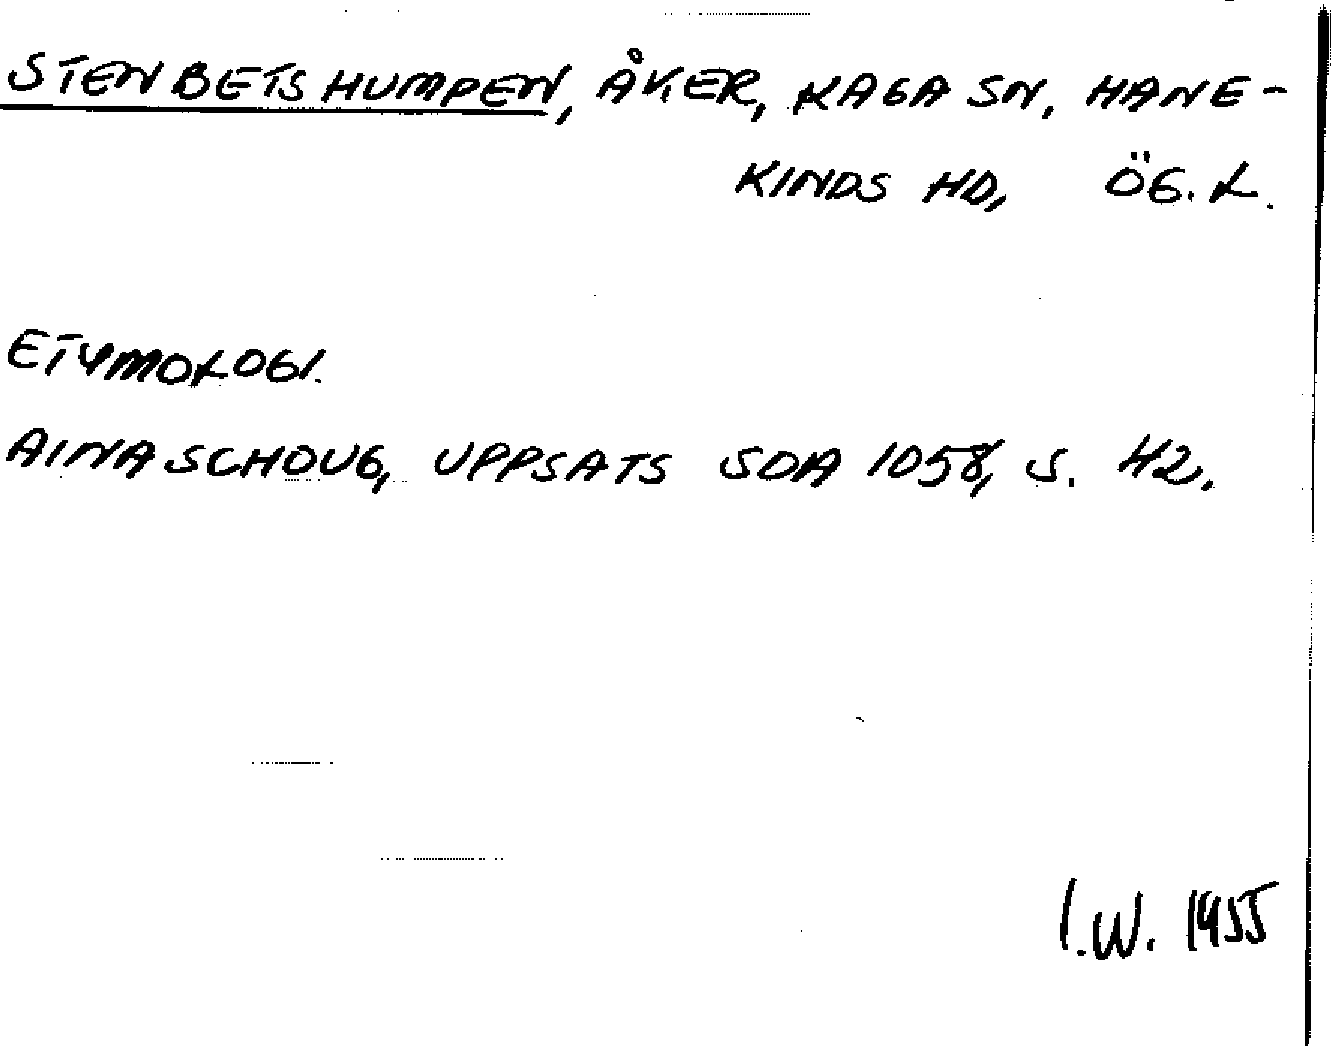 STENBETSHUMPEN, ÅKER, KAGA SN, HANE-
KINDS HD, ÖG. L.
ETYMOLOGI.
AINA SCHOUG, UPPSATS SOA 1058, S. 42.
I.W. 1955